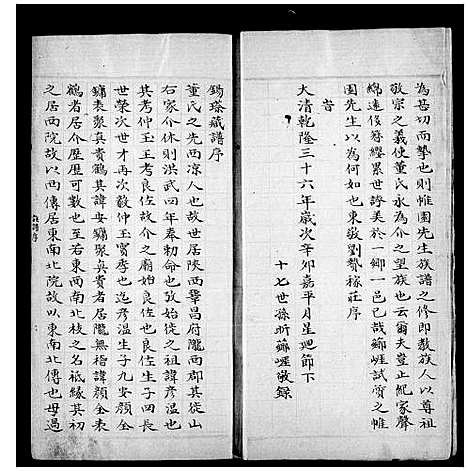 為甚切而摯也則帷園先生族譜之修即教族人以尊祖
敬宗之義使董氏永為介之望族也云爾夫豈止紀家聲
綿遠俊簪纓累世誇美於一鄉一邑已哉蘇崕試質之帷
園先生以為何如也東敬劉贊稼莊序
旹
大清乾隆三十六年歲次辛夘嘉平月星廻節下
十七世孫昕蘇崕敬錄
錫瑹藏譜序
董氏之先西涼人也故世居陝西鞏昌府隴西郡其徙山
右家介休則洪武四年奉勅命也攷始徙之祖諱彥溫也
其考仲玉王考良佐故介之廟始良佐也良佐生子四長
世榮次世才再次敬仲玉實季也迄彥溫生子九安顏全
鏞秉聚真貴鶴其諱安鏞聚真貴者居隴無稽諱顏全秉
鶴者居介歷歷可數也至若東西南北枝之名祗緣其初
之居西院故以西傳居東南北院故以東南北傳也毋過